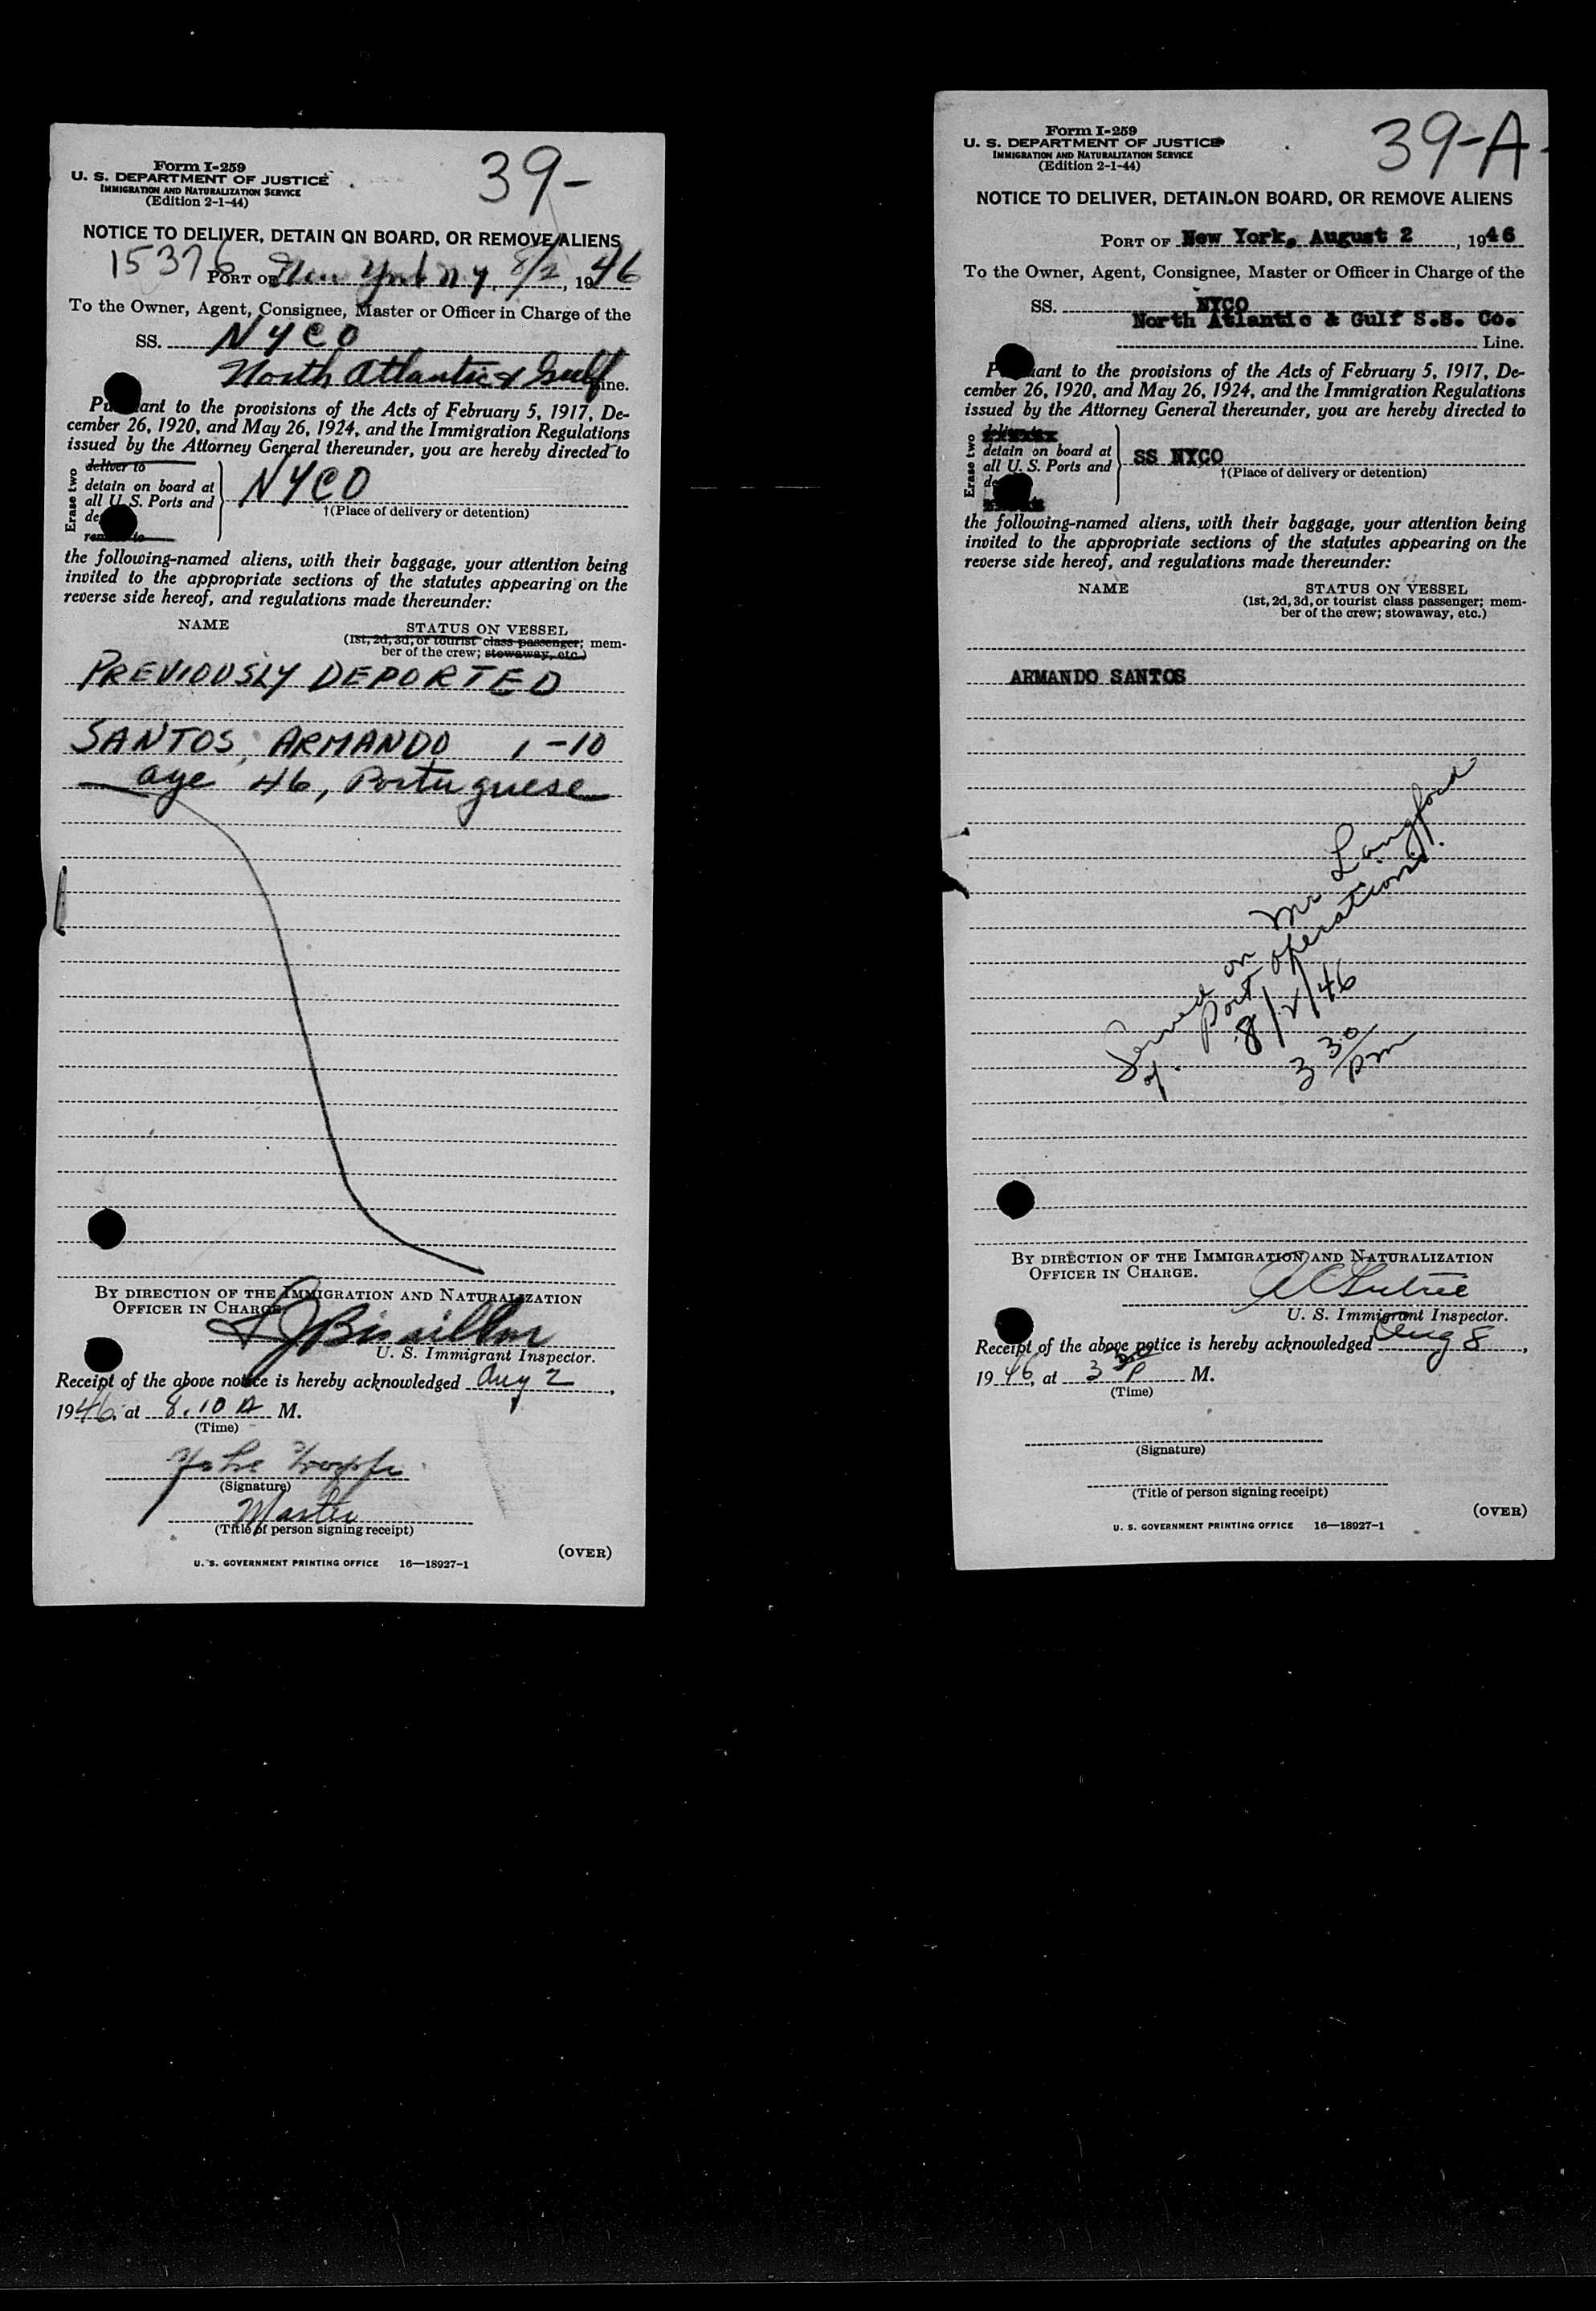 Form I-259
U. S. DEPARTMENT OF JUSTICE
IMMIGRATION AND NATURALIZATION SERVICE
(Edition 2-1-44)
39-
NOTICE TO DELIVER, DETAIN ON BOARD, OR REMOVE ALIENS
15376
PORT OF New York N Y, 8/2, 1946
To the Owner, Agent, Consignee, Master or Officer in Charge of the
SS. NYCO
North Atlantic & Gulf Line.
Pursuant to the provisions of the Acts of February 5, 1917, De-
cember 26, 1920, and May 26, 1924, and the Immigration Regulations
issued by the Attorney General thereunder, you are hereby directed to
Erase two
deliver to
detain on board at
all U. S. Ports and
NYCO
†(Place of delivery or detention)
the following-named aliens, with their baggage, your attention being
invited to the appropriate sections of the statutes appearing on the
reverse side hereof, and regulations made thereunder:
NAME
STATUS ON VESSEL
(1st, 2d, 3d, or tourist class passenger; mem-
ber of the crew; stowaway, etc.)
PREVIOUSLY DEPORTED
SANTOS, ARMANDO 1-10
age 46, Portuguese
BY DIRECTION OF THE IMMIGRATION AND NATURALIZATION
OFFICER IN CHARGE.
U. S. Immigrant Inspector.
Receipt of the above notice is hereby acknowledged Aug 2,
1946, at 8.10 A M.
(Time)
(Signature)
Master
(Title of person signing receipt)
(OVER)
U. S. GOVERNMENT PRINTING OFFICE 16—18927-1
Form I-259
U. S. DEPARTMENT OF JUSTICE
IMMIGRATION AND NATURALIZATION SERVICE
(Edition 2-1-44)
39-A
NOTICE TO DELIVER, DETAIN ON BOARD, OR REMOVE ALIENS
PORT OF New York, August 2, 1946
To the Owner, Agent, Consignee, Master or Officer in Charge of the
SS. NYCO
North Atlantic & Gulf S.S. Co.
Line.
Pursuant to the provisions of the Acts of February 5, 1917, De-
cember 26, 1920, and May 26, 1924, and the Immigration Regulations
issued by the Attorney General thereunder, you are hereby directed to
Erase two
detain on board at
all U. S. Ports and
SS NYCO
†(Place of delivery or detention)
the following-named aliens, with their baggage, your attention being
invited to the appropriate sections of the statutes appearing on the
reverse side hereof, and regulations made thereunder:
NAME
STATUS ON VESSEL
(1st, 2d, 3d, or tourist class passenger; mem-
ber of the crew; stowaway, etc.)
ARMANDO SANTOS
Served on Mr Langford
of. Port operations.
8/2/46
3 30 pm
BY DIRECTION OF THE IMMIGRATION AND NATURALIZATION
OFFICER IN CHARGE.
U. S. Immigrant Inspector.
Receipt of the above notice is hereby acknowledged Aug 8,
1946, at 3 30 P M.
(Time)
(Signature)
(Title of person signing receipt)
(OVER)
U. S. GOVERNMENT PRINTING OFFICE 16—18927-1